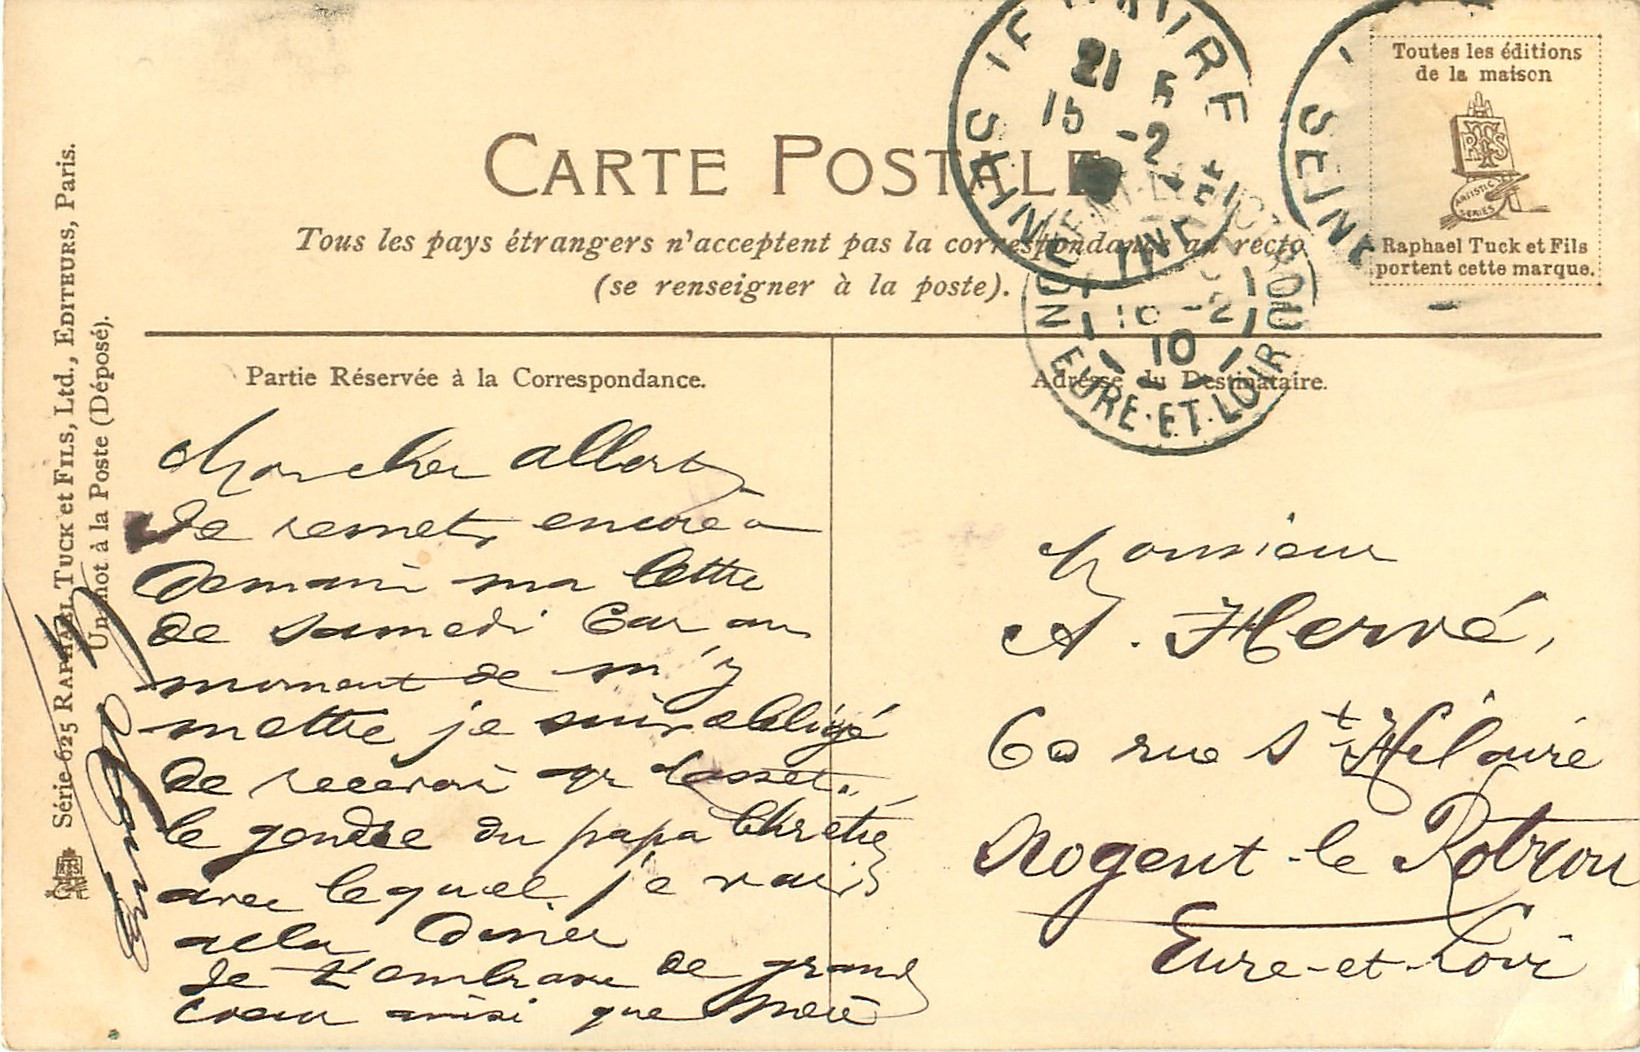 Toutes les éditions
de la maison
RTS
ARTISTIC
SERIES
Raphael Tuck et Fils
portent cette marque.
SEINE
21 5
15 -2
SEINE INF
SEINE
NOGENT-LE-ROTROU
16 -2
10
EURE-ET-LOIR
CARTE POSTALE
Tous les pays étrangers n'acceptent pas la correspondance au recto
(se renseigner à la poste).
Partie Réservée à la Correspondance.
Adresse du Destinataire.
Série 625 RAPHAEL TUCK et FILS, Ltd., EDITEURS, Paris.
Un mot à la Poste (Déposé).
Mon cher Albert
Je remets encore à
demain ma lettre
de samedi Car au
moment de m'y
mettre je suis obligé
de recevoir Mr
le gendre du papa Chrétien
avec lequel je vais
aller Diner
Je t'embrasse de grand
coeur ainsi que
Monsieur
A. Hervé,
60 rue St Hilaire
Nogent-le Rotrou
Eure-et-Loir